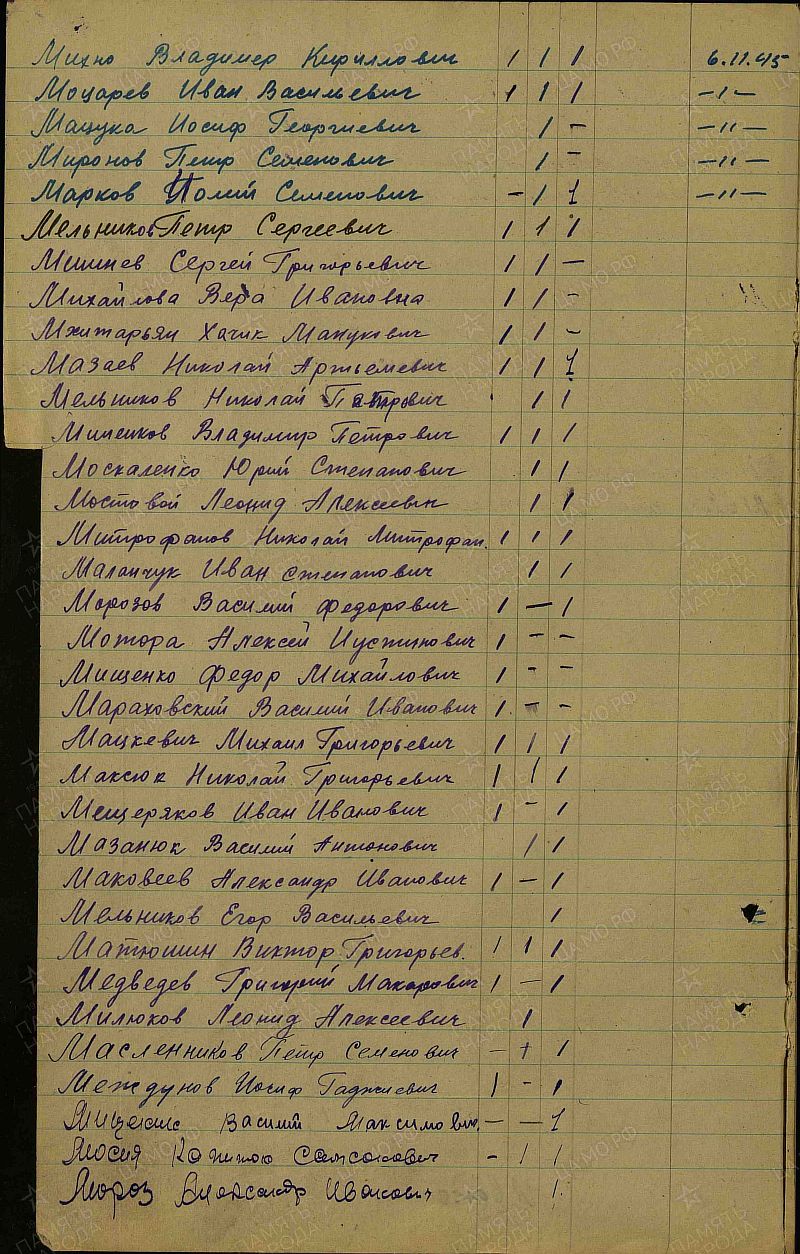 Михно Владимер Кириллович / / / 6.11.45
Моцарев Иван Васильевич / / / —"—
Мацука Иосиф Георгиевич / – —"—
Миронов Петр Семенович / – —"—
Марков Семенович – / 1 —"—
Мельников Петр Сергеевич / 1 /
Сергей Григорьевич / / —
Михайлова Вера Ивановна / / –
Мхитарьян Хачик Манукович / / –
Мазаев Николай Артьемевич / / 1
Мельников Николай Петрович / /
Миненков Владимир Петрович / / /
Москаленко Юрий Степанович / /
Мостовой Леонид Алексеевич / /
Митрофанов Николай Митрофан. / / /
Маланчук Иван Степанович / /
Морозов Василий Федорович / — /
Мотора Алексей Иустинович / – –
Мищенко Федор Михайлович / – –
Мараховский Василий Иванович / – –
Мацкевич Михаил Григорьевич / / /
Максюк Николай Григорьевич / / /
Мещеряков Иван Иванович / – /
Мазанюк Василий Антонович / /
Маковеев Александр Иванович / – /
Мельников Егор Васильевич /
Матюшин Виктор Григорьев. / / /
Медведев Григорий Макарович / – /
Милюков Леонид Алексеевич /
Масленников Петр Семенович – + /
Междунов Иосиф Гаджиевич / – /
Василий Максимович. – – 1
Мосия Самсонович – / /
Мороз Александр Иванович /